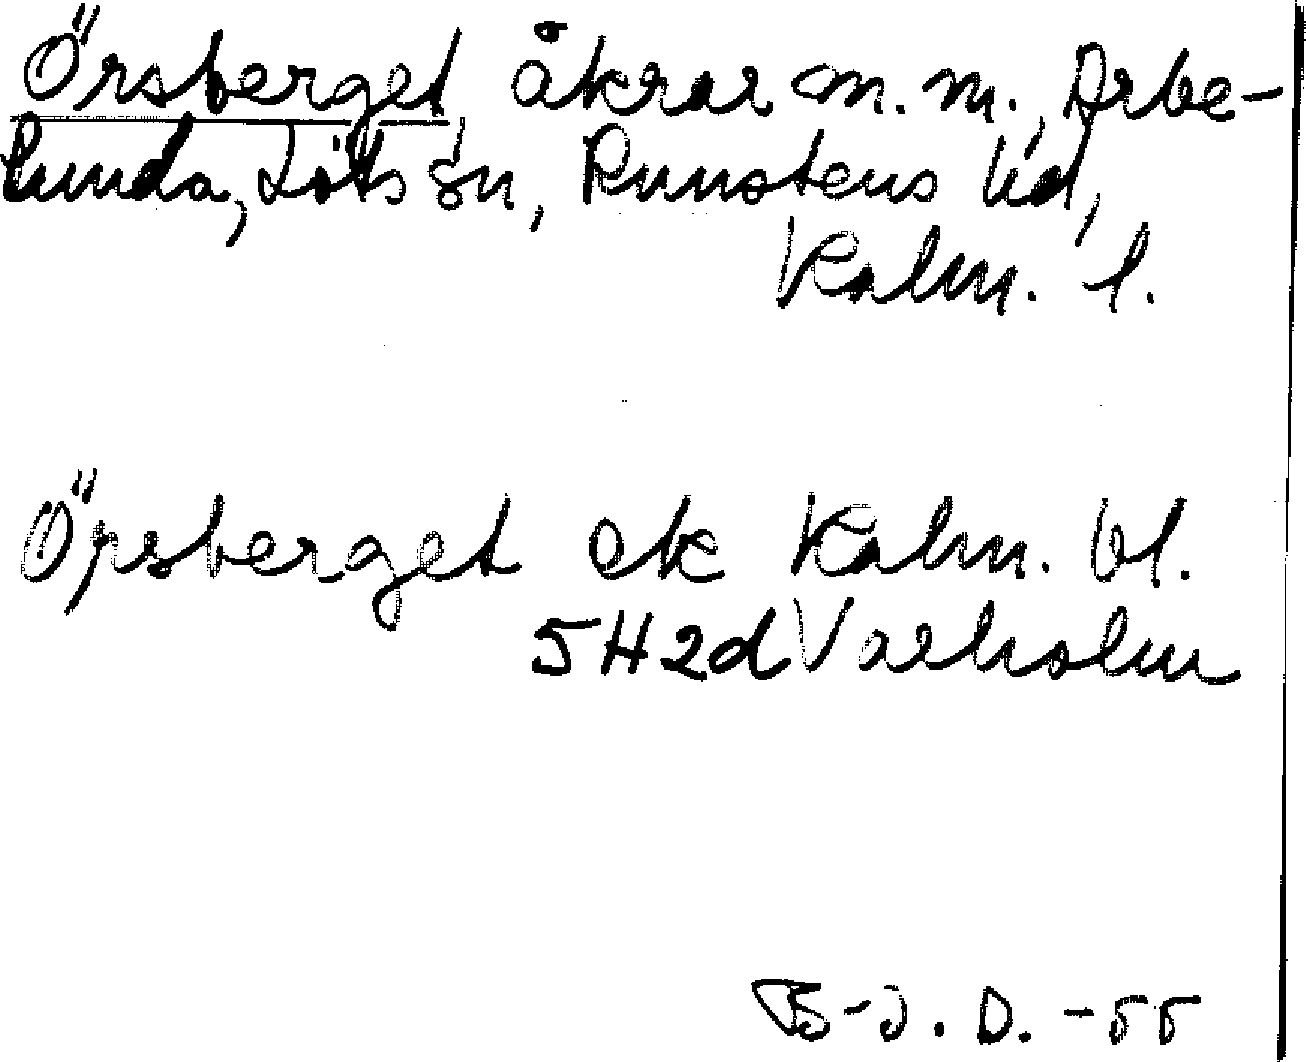 Örsberget, åkrar m. m., Arbe-
lunda, Löts sn, Runstens hd,
Kalm. l.
Öpsberget ek Kalm. bl.
5H2d Valholm
B-J. D. -55